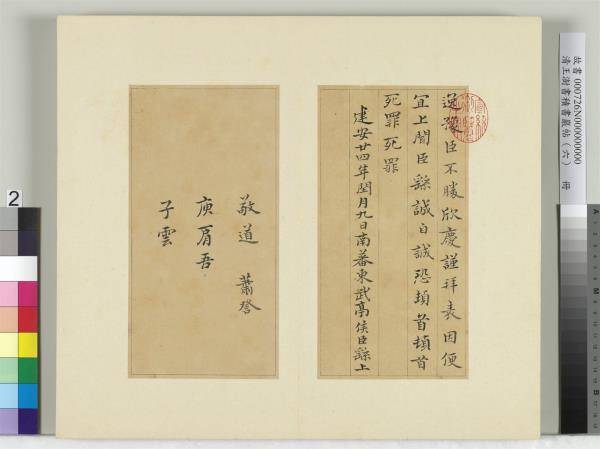 逸豫臣不勝欣慶謹拜表因便
宜上聞臣繇誠惶誠恐頓首頓首
死罪死罪
建安廿四年閏月九日南蕃東武亭侯臣繇上
敬道 蕭詧
庾肩吾
子雲
故書 000726N000000000
清王澍書積書巖帖(六) 冊
2